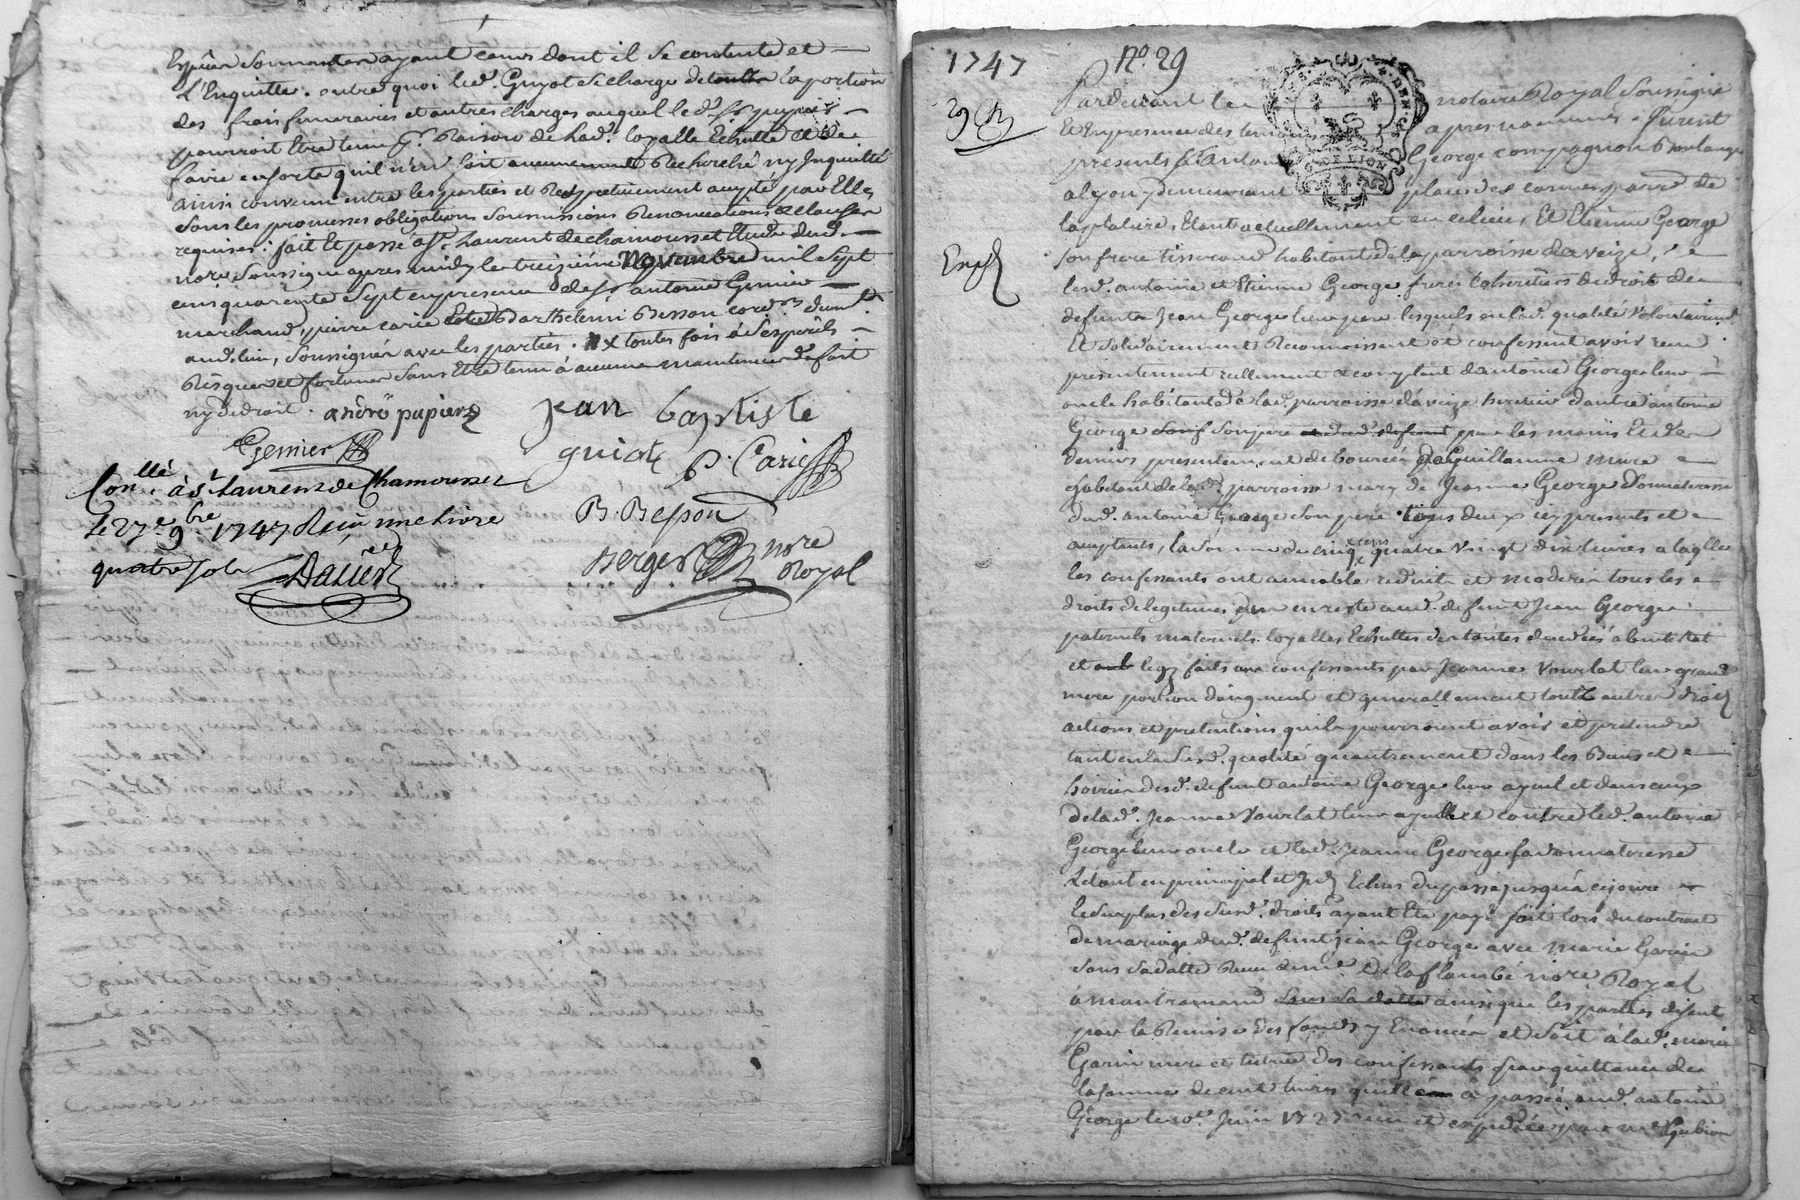 ayant cours dont il se contente et
L'Enquitte. outre quoi led. Guyot se charge de la portion
des frais funeraires et autres charges auquel led. Sr papier
pourroit Etre tenu pr. Raison de lad. loyalle Echutte et de
faire ensorte qu'il n'en soit aucunement Recherché ny Inquietté
ainsi convenu entre les parties et Respectivement accepté par Elles
sous les promesses obligations soumissions Renonciations & clauses
requises : fait Et passé a St. Laurent de chamousset Etude dud.
nore soussigné apres midy le treizieme Novembre mil sept
cens quarente sept en presence de sr antoine Gernier
marchand, pierre carie Et Barthelemi Besson cord.rs dud.
aud. lieu, soussignés avec les parties. x toutes fois à ses perils
Risques et fortunes sans Etre tenu à aucune maintenue de fait
ny de droit. andré papier
jean baptiste
Gernier
guiot P. Carie
Conllé. à St Laurens de Chamousset
B. Besson
le 27e 9bre 1747 Reçu une livre
Berger nore Royal
quatre sols Dalier
1747 No. 29
Pardevant le notaire Royal soussigné
Et En presence des temoins apres nommés furent
presents Sr. Antoine George compagnon Boulanger
a lyon y demeurant place des carmes parre. de
la platiere, Etant actuellement en ce lieu, Et Etienne George
Exp
son frere tisserand habitant de la parroisse daveize,
lesd. antoine et Etienne George freres Cohéritiers de droit de
defunt Jean George leur pere lesquels en lad. qualité volontairemt.
Et solidairement Reconnoissent et confessent avoir reçu
presentement reellement & comptant dantoine George leur
oncle habitant de lad. parroisse daveize heritier dautre antoine
George son pere par les mains Et des
deniers presentement de boursés de Guillaume mure
habitant de lad. parroisse mary de Jeanne George donnateresse
dud. antoine George son pere tous deux icy presents et
acceptants, la somme de cinq cens quatre vingt dix livres a laqlle
les confessants ont amiable reduit et moderé tous les
droits de legitimes en reste aud. defunt Jean George
paternels maternels loyalles Echuttes des tantes decedées abintestat
et legs faits aux confessants par Jeanne vourlat leur grand
mere portion daugment et generallement touts autres droits
actions et pretentions quils pourroient avoir et pretendre
tant en la susd. qualité quautrement dans les Biens et
hoirie dud. defunt antoine George leur ayeul et dans ceux
de lad. Jeanne vourlat leur ayeulle et contre led. antoine
George leur oncle et lad. Jeanne George sa donnateresse
Le tout en principal et Echus du passé jusqu'a ce jour
le surplus des susd. droits ayant Eté payé soit lors du contract
de mariage dud. defunt jean George avec marie Garin
sous sa datte Reçu par me Delaflambé nore. Royal
a montromand ainsi que les parties disent
pour la Remise des fonds y Enoncés et soit à lad. marie
Garin mere et tutrice des confessants par quittance de
la somme de cent livres quelle a passée aud. antoine
George le Juin 1727 reçu et expediée par me Gubian